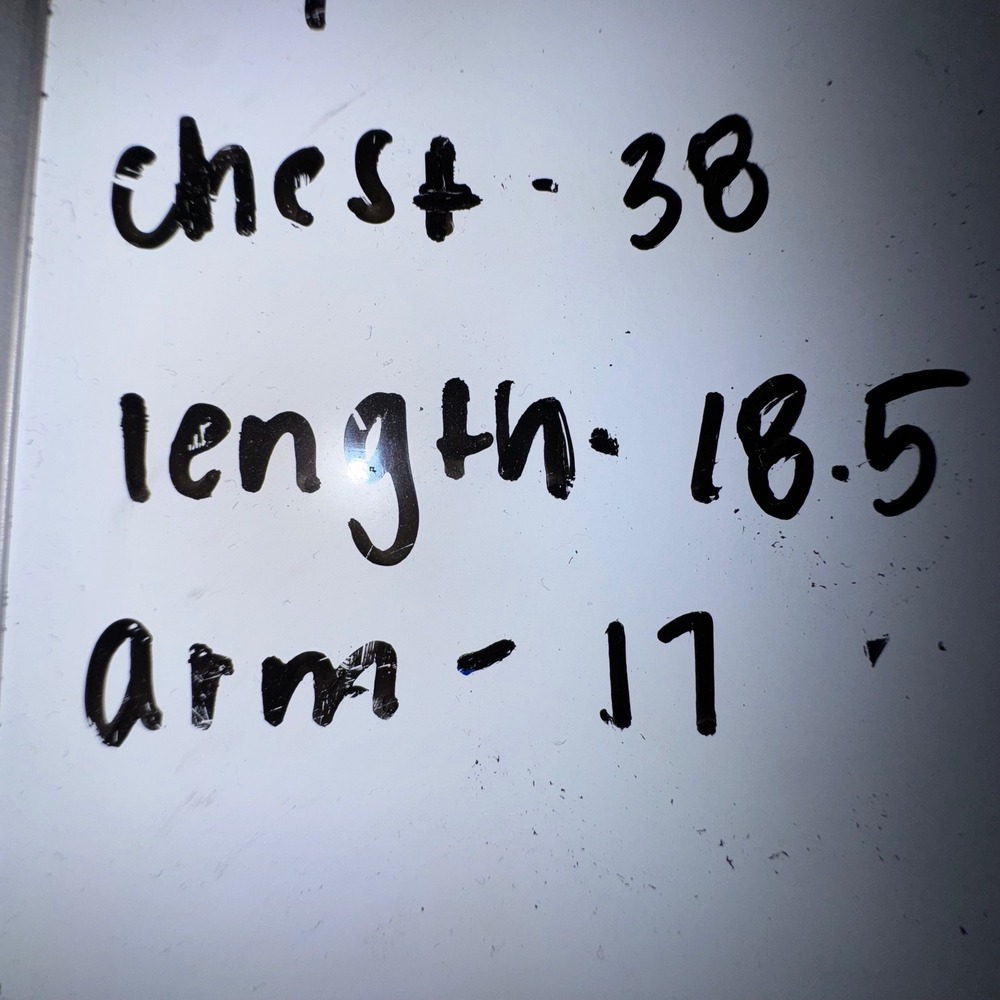 chest - 38
length - 18.5
arm - 17